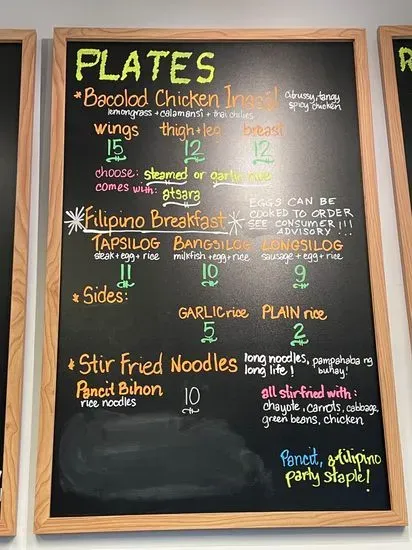 PLATES
* Bacolod Chicken Inasal citrussy, tangy
lemongrass + calamansi + thai chilies spicy chicken
wings thigh+leg breast
15 12 12
choose: steamed or garlic rice
comes with: atsara
Filipino Breakfast
EGGS CAN BE
COOKED TO ORDER
SEE CONSUMER
ADVISORY !!!
TAPSILOG BANGSILOG LONGSILOG
steak + egg + rice milkfish + egg + rice sausage + egg + rice
11 10 9
* Sides:
GARLIC rice PLAIN rice
5 2
* Stir Fried Noodles long noodles, pampahaba ng
long life! buhay!
Pancit Bihon 10
rice noodles
all stirfried with:
chayote, carrots, cabbage,
green beans, chicken
Pancit, a filipino
party staple!